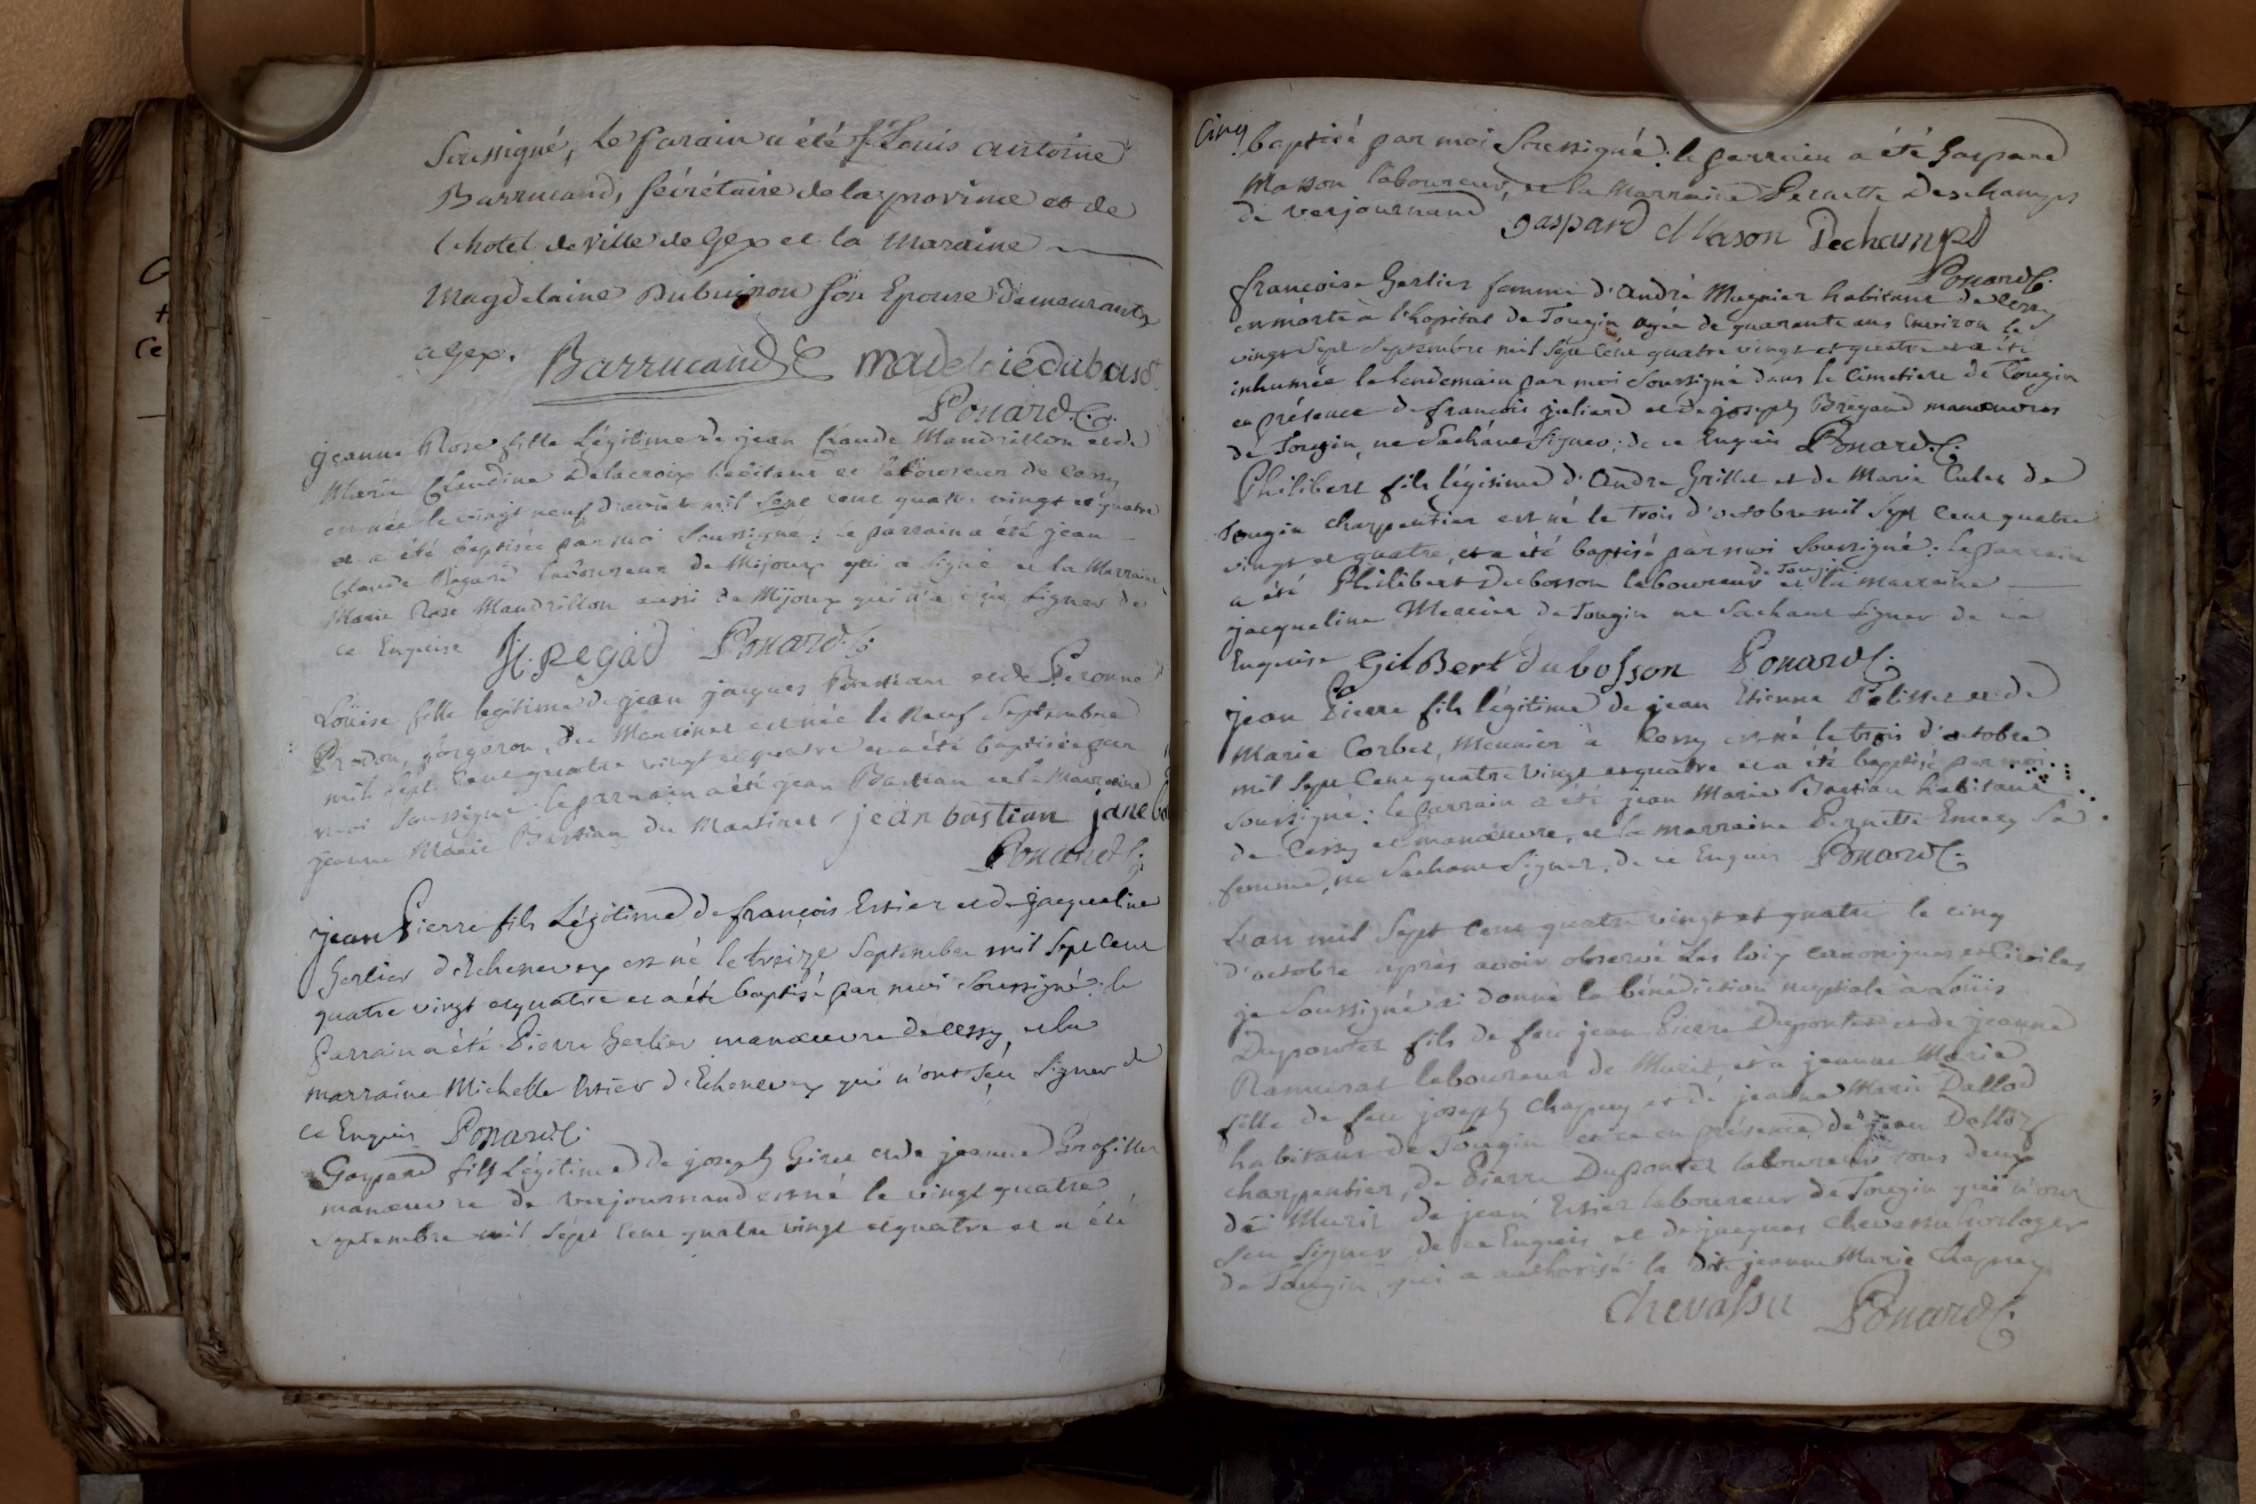 Soussigné, le parain a été Sr Louis antoine
Barrucand, sécrétaire de la province et de
l'hotel de ville de Gex et la maraine
Magdelaine Dubuisson son Epouse demeurants
a Gex. Barrucand madeleie dubuis
Ponard C.
jeanne Rose fille Légitime de jean Claude Mandrillon et de
Marie Claudine Delacroix habitant et laboureur de Cessy
est née le vingt neuf d'août mil sept cent quatre vingt et quatre
et a été baptisée par moi soussigné; le parrain a été jean
Claude Regard laboureur de Mijoux qui a signé et la Marraine
Marie Rose Mandrillon aussi de Mijoux qui n'a sçu signer de
ce Enquise J. C. Regad Ponard C.
Loüise fille légitime de jean jacques Bastian et de Peronne
Prodon, forgeron, du Martinet est née le Neuf Septembre
mil sept cent quatre vingt et quatre et a été baptisée par
moi soussigné: le parrain a été jean Bastian et la Marraine
jeanne Marie Bastian du Martinet jean bastian jane ba
Ponard C.
jean Pierre fils Légitime de françois Ertier et de jacqueline
Gerlier d'Echenevex est né le treize Septembre mil sept cent
quatre vingt et quatre et a été baptisé par moi soussigné: le
parrain a été Pierre Gerlier manœuvre de Cessy, et la
marraine Michelle Ertier d'Echenevex qui n'ont sçu signer de
ce Enquis Ponard C.
Gaspard fils Légitime de joseph Girel et de jeanne Grosfiller
manœuvre de verjournand est né le vingt quatre
septembre mil sept cent quatre vingt et quatre et a été
Cinq
baptisé par moi Soussigné: le parrain a été Gaspard
Masson laboureur, et la Marraine Pernette Deschamps
de verjournand gaspard Mason Dechamps
Ponard C.
françoise Gerlier femme d'André Magnier habitant de Cessy
est morte à l'hopital de Tougin agée de quarante ans Environ le
vingt sept Septembre mil sept cent quatre vingt et quatre et a été
inhumée le lendemain par moi soussigné dans le Cimetiere de Tougin
en présence de françois juliard et de joseph Brégand manœuvres
de Tougin, ne sachant signer; de ce Enquis Ponard C.
Philibert fils légitime d'André Grillet et de Marie Culet de
Tougin charpentier est né le trois d'octobre mil sept cent quatre
vingt et quatre, et a été baptisé par moi soussigné: le parrain
a été Philibert Dubosson laboureur de Tougin et la marraine
jacqueline Mercier de Tougin ne sachant signer de ce
Enquise Gilbert dubosson Ponard C.
jean Pierre fils légitime de jean Etienne Pelisser et de
Marie Corbet, Meunier à Cessy est né le trois d'octobre
mil sept cent quatre vingt et quatre et a été baptisé par moi
soussigné: le parrain a été jean Marie Bastian habitant
de Cessy et manœuvre, et la marraine Pernette Emery sa
femme, ne sachant signer, de ce Enquis Ponard C.
L'an mil sept cent quatre vingt et quatre le cinq
d'octobre après avoir observé les loix canoniques et Civiles
je soussigné ai donné la bénédiction nuptiale à Loüis
Dupontet fils de feu jean Pierre Dupontet et de jeanne
Ramusat laboureur de Muris et à jeanne Marie
fille de feu joseph Chapuy et de jeanne Marie Dalloz
habitant de Tougin et ce en présence de jean Dalloz
charpentier, de Pierre Dupontet laboureur tous deux
de Muris, de jean Ertier laboureur de Tougin qui n'ont
seu signer de ce Enquis et de jacques Chevassu horloger
de Tougin, qui a authorisé la dite jeanne Marie Chapuy
Chevassu Ponard C.